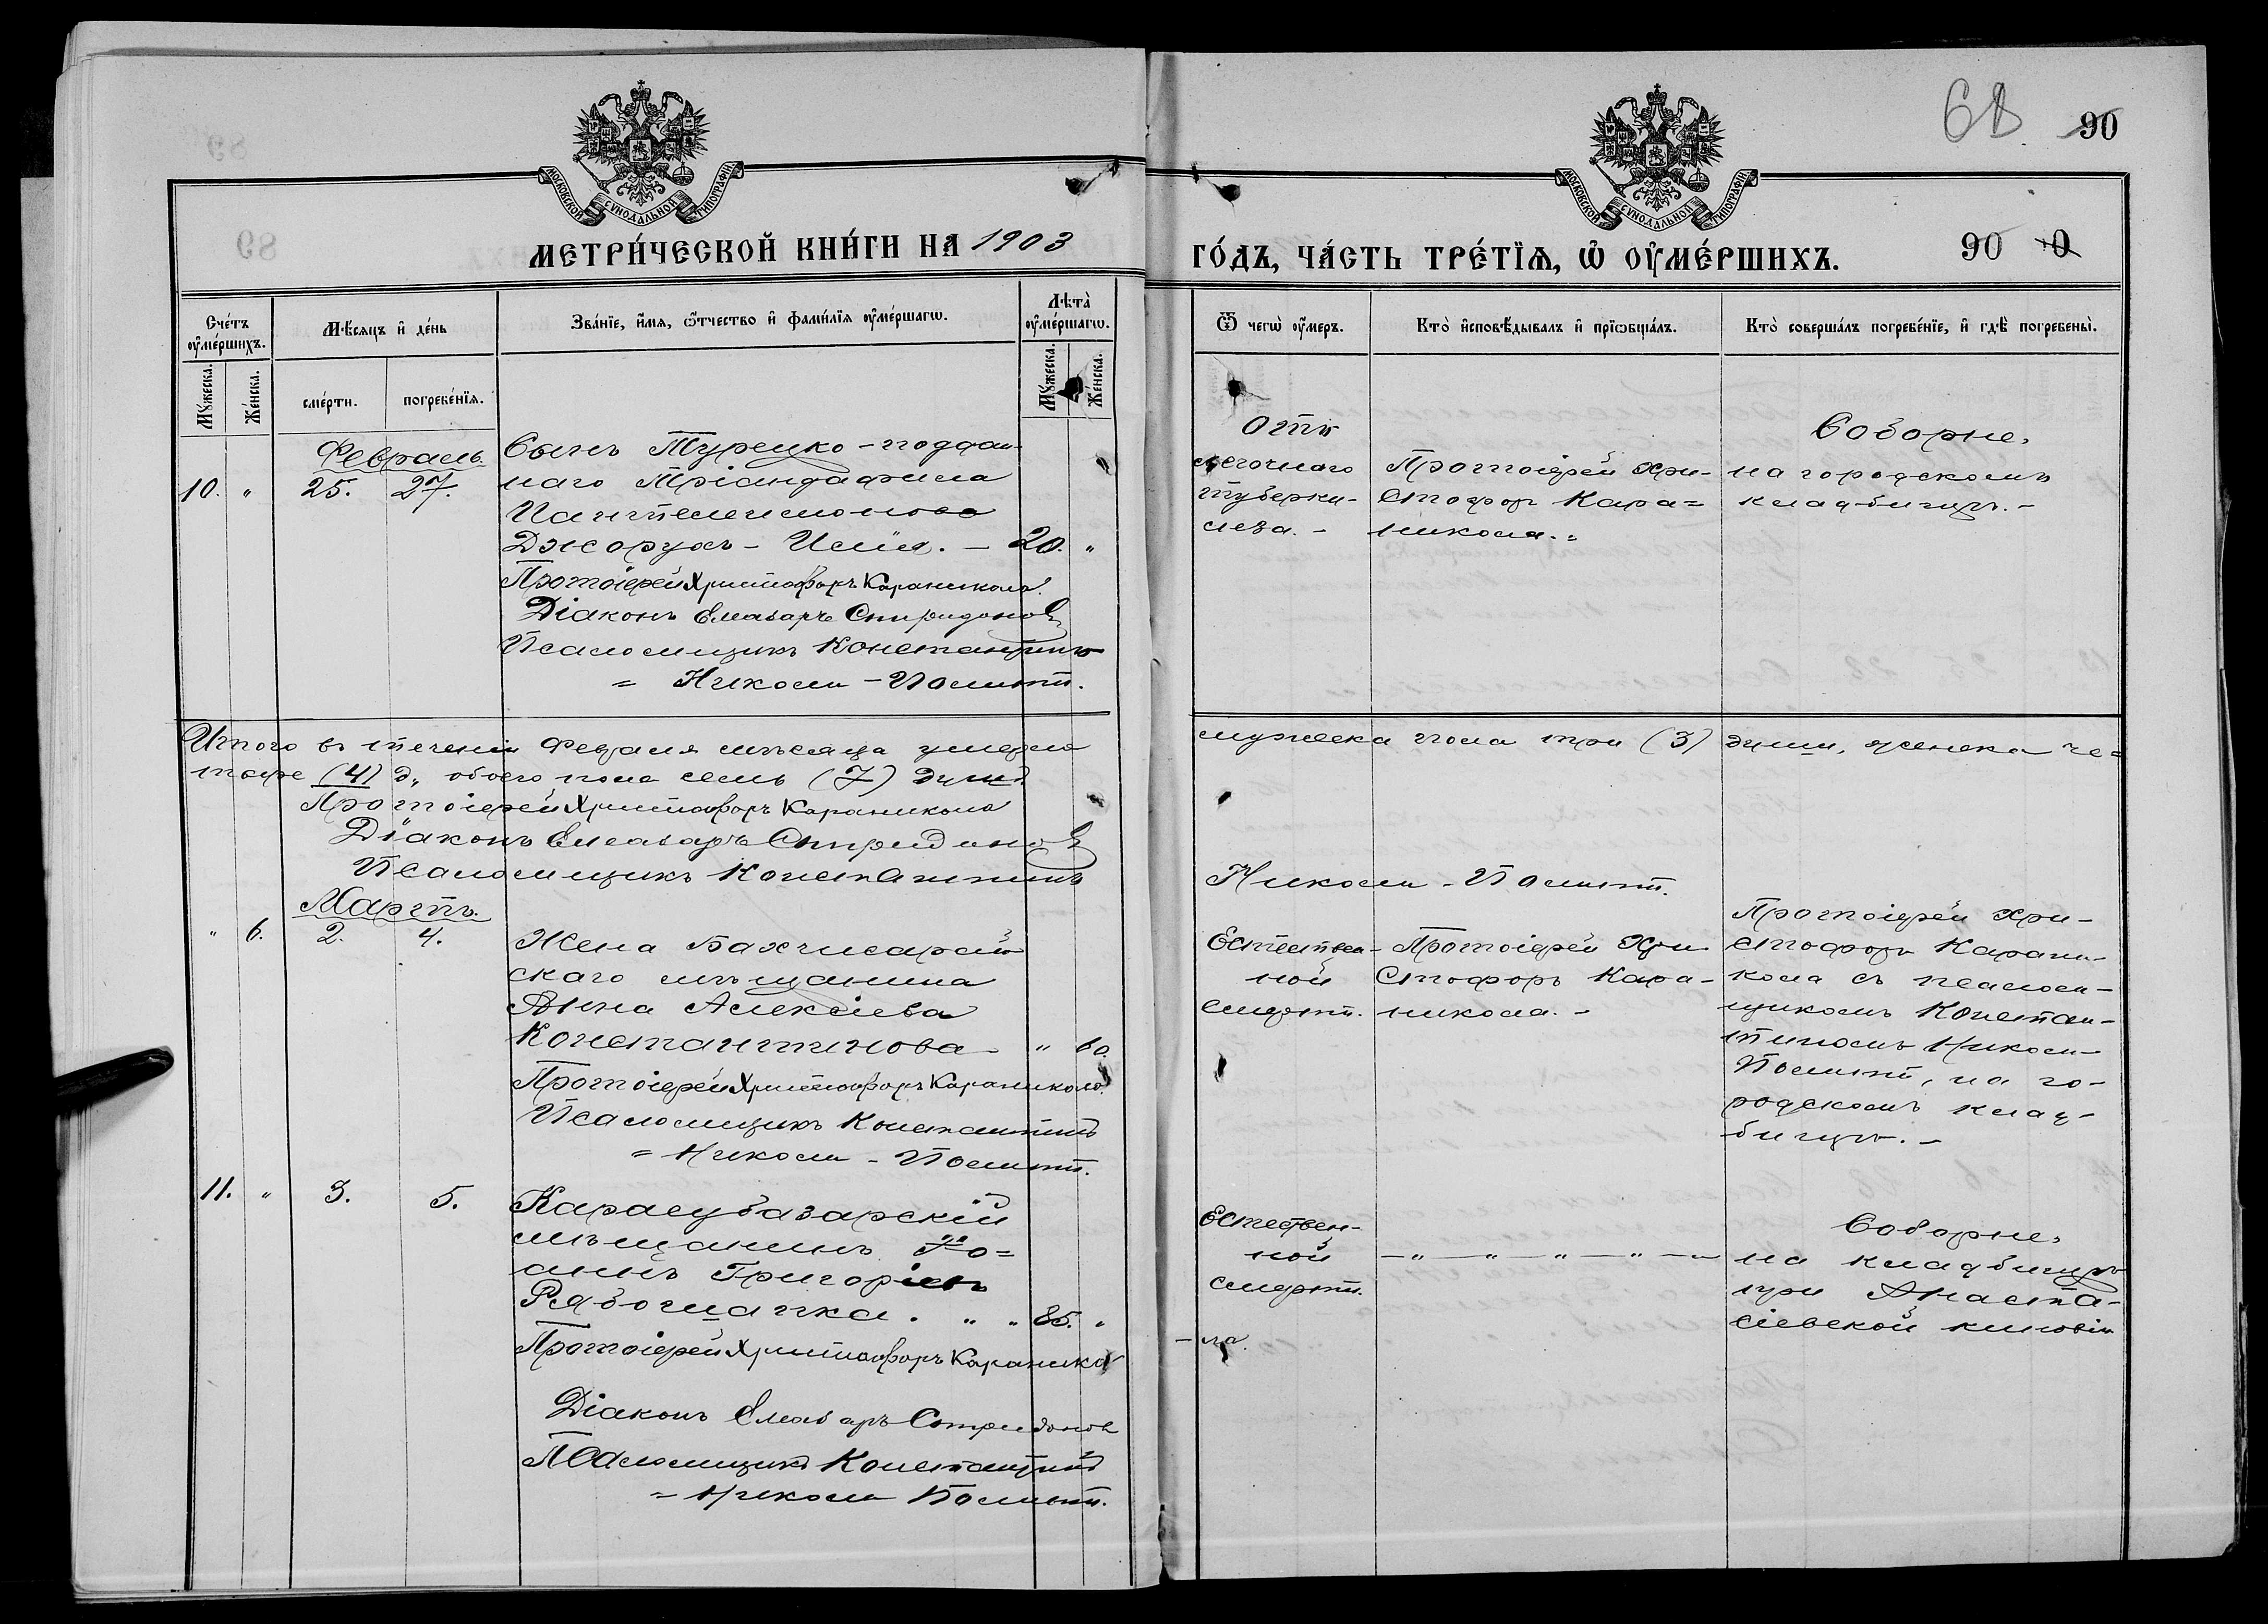 68 90
МОСКОВСКОЙ СѴНОДАЛЬНОЙ ТИПОГРАФІИ
МОСКОВСКОЙ СѴНОДАЛЬНОЙ ТИПОГРАФІИ
МЕТРИ́ЧЕСКОЙ КНИ́ГИ НА 1903
ГО́ДЪ, ЧА́СТЬ ТРЕ́ТЇѦ, Ѡ҆ ОУ҆МЕ́РШИХЪ.
90
Сче́тъ оу҆ме́ршихъ.
Мѣ́сяцъ и҆ де́нь
Зва́нїе, и҆́мя, ѻ҆́тчество и҆ фами́лїя оу҆ме́ршагѡ.
Лѣ́та оу҆ме́ршагѡ.
Ѿ чегѡ̀ оу҆́меръ.
Кто̀ и҆сповѣ́дывалъ и҆ прїѡбща́лъ.
Кто̀ соверша́лъ погребе́нїе, и҆ гдѣ̀ погребены̀.
Мꙋ́жеска. Же́нска.
сме́рти. погребе́нїя.
Мꙋ́жеска. Же́нска.
Февраль.
10. " 25. 27.
Сынъ Турецко-поддан-
наго Тріандафила
Пантелеимонова
Джорухъ- . - 20. "
Протоіерей Христофоръ Караникола.
Діаконъ Елеазаръ Спиридоновъ
Псаломщикъ Константинъ
= Николи-Политт.
Отъ
легочнаго
туберку-
леза. -
Протоіерей Хри-
стофоръ Кара=
никола. "
Соборне,
на городскомъ
кладбищѣ. -
Итого въ теченіи Февраля мѣсяца умерло мужеска пола три (3) души, женска че=
тыре (4) д., обоего пола семь (7) душъ.
Протоіерей Христофоръ Караникола
Діаконъ Елеазаръ Спиридоновъ
Псаломщикъ Константинъ Николи-Политт.
Мартъ.
" 6. 2. 4.
Жена Бахчисарай
скаго мѣщанина
Анна Алексіева
Константинова - " 60.
Протоіерей Христофоръ Караникола.
Псаломщикъ Константинъ
= Николи - Политт.
Естествен-
ной
смерти.
Протоіерей Хри-
стофоръ Кара-
никола. -
Протоіерей Хри-
стофоръ Карани-
кола съ псалом-
щикомъ Констан-
тиномъ Николи-
Политт, на го-
родскомъ клад-
бищѣ. -
11. " 3. 5.
Карасубазарскій
мѣщанинъ Іо=
аннъ Григоріевъ
Рябошапка. " " 85. "
Протоіерей Христофоръ Караникола
Діаконъ Елеазаръ Спиридоновъ
Псаломщикъ Константинъ
= Николи Политт.
Естествен-
ной
смерти.
— " — " — " — " —
Соборне,
на кладбищѣ
при Анаста-
сіевской киновіи